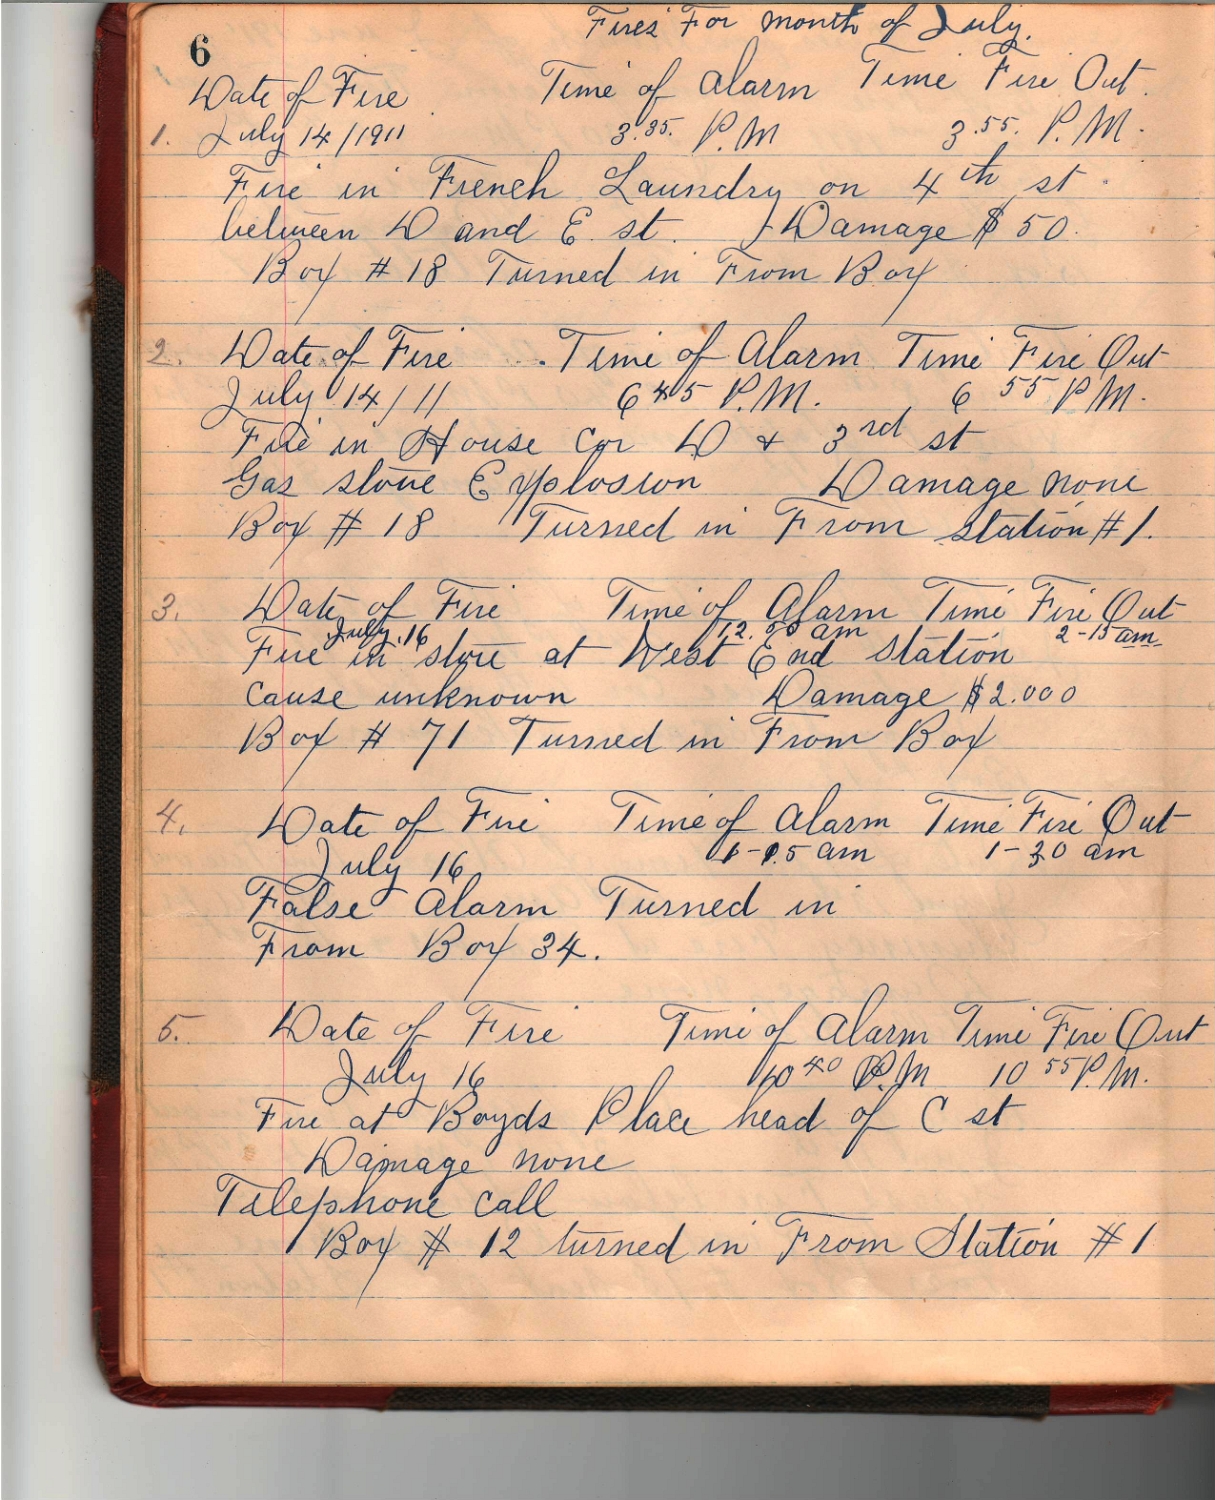 Fires For month of July.
6
Date of Fire Time of Alarm Time Fire Out.
1. July 14/1911 3.35. P.M 3.55. P.M.
Fire in French Laundry on 4th st.
between D and E st. Damage $50.
Box # 18 Turned in From Box
2. Date of Fire Time of Alarm Time Fire Out
July 14/11 6 45 P.M. 6 55 P.M.
Fire in House Cor D + 3rd st
Gas stove Explosion Damage none
Box # 18 Turned in From Station #1.
3. Date of Fire Time of Alarm Time Fire Out
July.16 am 2-15 am
Fire in store at West End Station
cause unknown Damage $2.000
Box # 71 Turned in From Box
4. Date of Fire Time of Alarm Time Fire Out
July 16 am 1-30 am
False Alarm Turned in
From Box 34.
5. Date of Fire Time of Alarm Time Fire Out
July 16 10 40 P.M 10 55 P.M.
Fire at Boyds Place head of C st
Damage none
Telephone call
Box # 12 turned in From Station #1